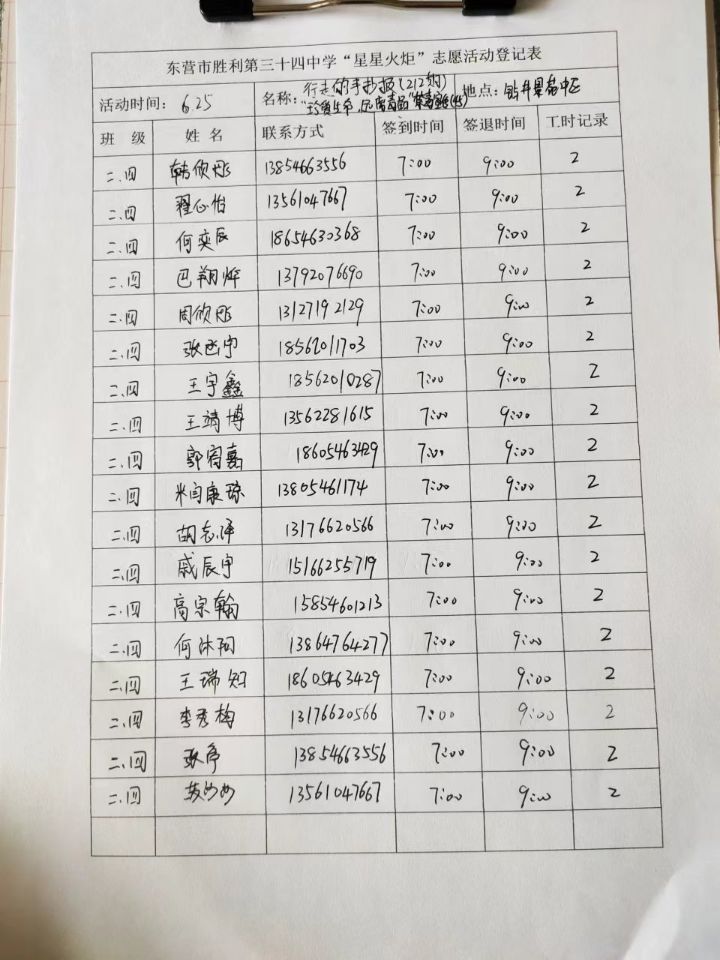 东营市胜利第三十四中学“星星火炬”志愿活动登记表
活动时间： 6.25 名称： 行走的手抄报(212纳) 地点：
“珍爱生命,
班 级 姓 名 联系方式 签到时间 签退时间 工时记录
二.四 韩欣彤 13854663556 7:00 9:00 2
二.四 翟心怡 13561047667 7:00 9:00 2
二.四 何奕辰 18654630368 7:00 9:00 2
二.四 巴翔烨 13792076690 7:00 9:00 2
二.四 周欣彤 13127192129 7:00 9:00 2
二.四 张 宇 18562011703 7:00 9:00 2
二.四 王宇鑫 18562010287 7:00 9:00 2
二.四 王靖博 13562281615 7:00 9:00 2
二.四 郭宥嘉 18605463429 7:00 9:00 2
二.四 米闫康琼 13805461174 7:00 9:00 2
二.四 胡志泽 13176620566 7:00 9:00 2
二.四 戚辰宇 15166255719 7:00 9:00 2
二.四 高宗翰 15854601213 7:00 9:00 2
二.四 何沐阳 13864764277 7:00 9:00 2
二.四 王瑞知 18605463429 7:00 9:00 2
二.四 李秀梅 13176620566 7:00 9:00 2
二.四 张亭 13854663556 7:00 9:00 2
二.四 13561047667 7:00 9:00 2